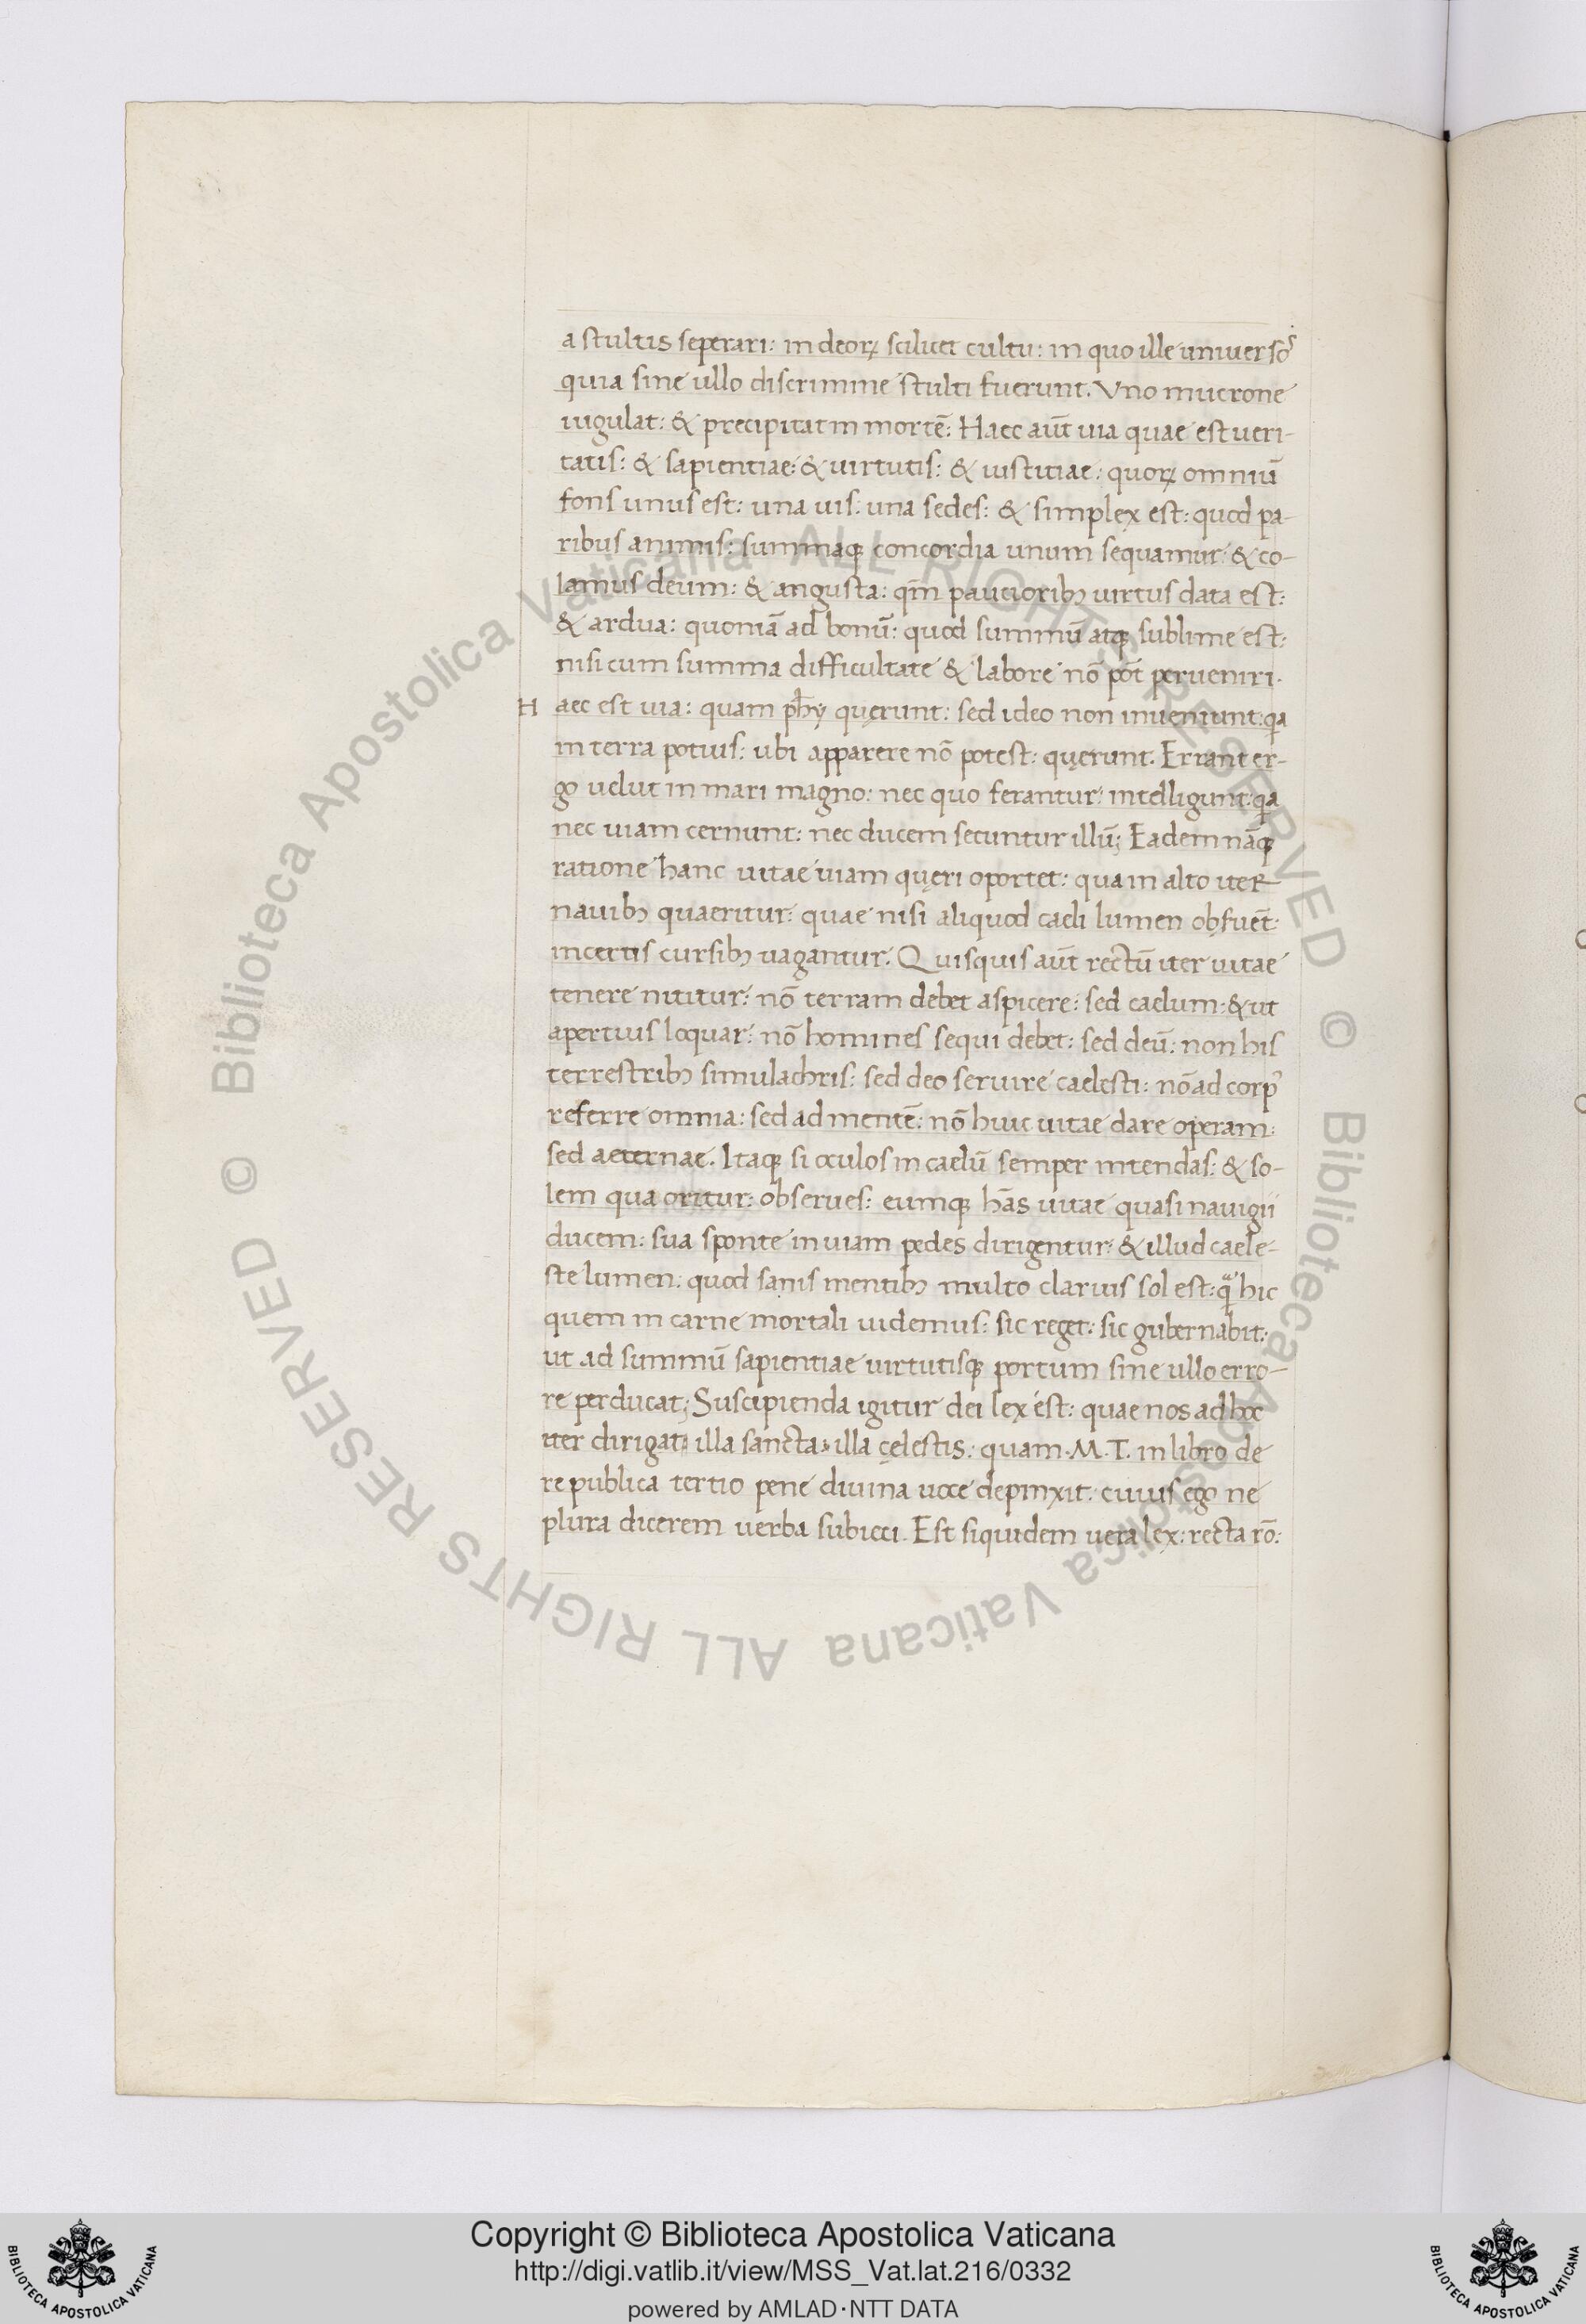 a stultis seperari: in deoꝝ scilicet cultu: in quo ille uniuersos
quia sine ullo discrimine stulti fuerunt. Vno mucrone
iugulat: & precipitat in mortē: Haec aūt uia quae est ueri-
tatis: & sapientiae: & uirtutis: & iustitiae: quoꝝ omniū
fons unus est: una uis: una sedes: & simplex est: quod pa-
ribus animis: summaqꝫ concordia unum sequamur: & co-
lamus deum: & angusta: qm̄ paucioribꝫ uirtus data est:
& ardua: quoniā ad bonū: quod summū atqꝫ sublime est:
nisi cum summa difficultate & labore nō pōt perueniri.
Haec est uia: quam phy̅ quęrunt: sed ideo non inueniunt: qa
in terra potius: ubi apparere nō potest: quęrunt. Errant er-
go uelut in mari magno: nec quo ferantur: intelligunt: qa
nec uiam cernunt: nec ducem secuntur illū; Eadem nāqꝫ
ratione hanc uitae uiam quęri oportet: qua in alto iter
nauibꝫ quaeritur: quae nisi aliquod caeli lumen obs̩fuēt:
incertis cursibꝫ uagantur. Quisquis aūt rectū iter uitae
tenere nititur: nō terram debet aspicere: sed caelum: & ut
apertius loquar: nō homines sequi debet: sed deū: non his
terrestribꝫ simulachris: sed deo seruire caelesti: nō ad corpꝰ
referre omnia: sed ad mentē: nō huic uitae dare operam:
sed aeternae. Itaqꝫ si oculos in caelū semper intendas: & so-
lem qua oritur: obserues: eumqꝫ hās uitae quasi nauigii
ducem: sua sponte in uiam pedes dirigentur: & illud caele-
ste lumen: quod sanis mentibꝫ multo clarius sol est: qͣ hic
quem in carne mortali uidemus: sic reget: sic gubernabit:
ut ad summū sapientiae uirtutisqꝫ portum sine ullo erro-
re perducat; Suscipienda igitur dei lex est: quae nos ad hoc
iter dirigat: illa sancta: illa cęlestis: quam .M.T. in libro de
re publica tertio pene diuina uoce depinxit: cuius ego ne
plura dicerem uerba subieci. Est siquidem uera lex: recta rō:
Copyright © Biblioteca Apostolica Vaticana
http://digi.vatlib.it/view/MSS_Vat.lat.216/0332
powered by AMLAD·NTT DATA
BIBLIOTECA APOSTOLICA VATICANA
BIBLIOTECA APOSTOLICA VATICANA
© Biblioteca Apostolica Vaticana ALL RIGHTS RESERVED
© Biblioteca Apostolica Vaticana ALL RIGHTS RESERVED